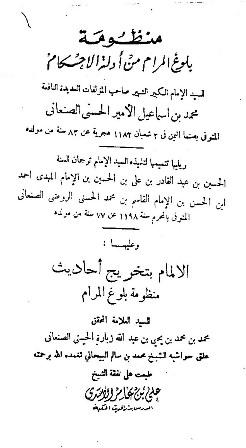 منظومة
بلوغ المرام من أدلة الأحكام
للسيد الإمام الكبير الشهير صاحب المؤلفات العديدة النافعة
محمد بن اسماعيل الأمير الحسنى الصنعانى
المتوفى بصنعا اليمن فى ٣ شعبان ١١٨٢ هجرية عن ٨٣ سنة من مولده
ويليها تتميمها لتلميذه السيد الإمام ترجمان السنة
الحسين بن عبد القادر بن على بن الحسين بن الإمام المهدى احمد
ابن الحسن بن الإمام القاسم بن محمد الحسنى الروضى الصنعانى
المتوفى بالمحرم سنة ١١٩٨ عن ٧٧ سنة من مولده
وعليهما :
الإلمام بتخريج أحاديث
منظومة بلوغ المرام
للسيد العلامة المحقق
محمد بن محمد بن يحيى بن عبد الله زبارة الحسنى الصنعانى
علق حواشيه الشيخ محمد بن سالم البيحانى تغمده الله برحمته
طبعت على نفقة الشيخ
على بن عامر الأسدى